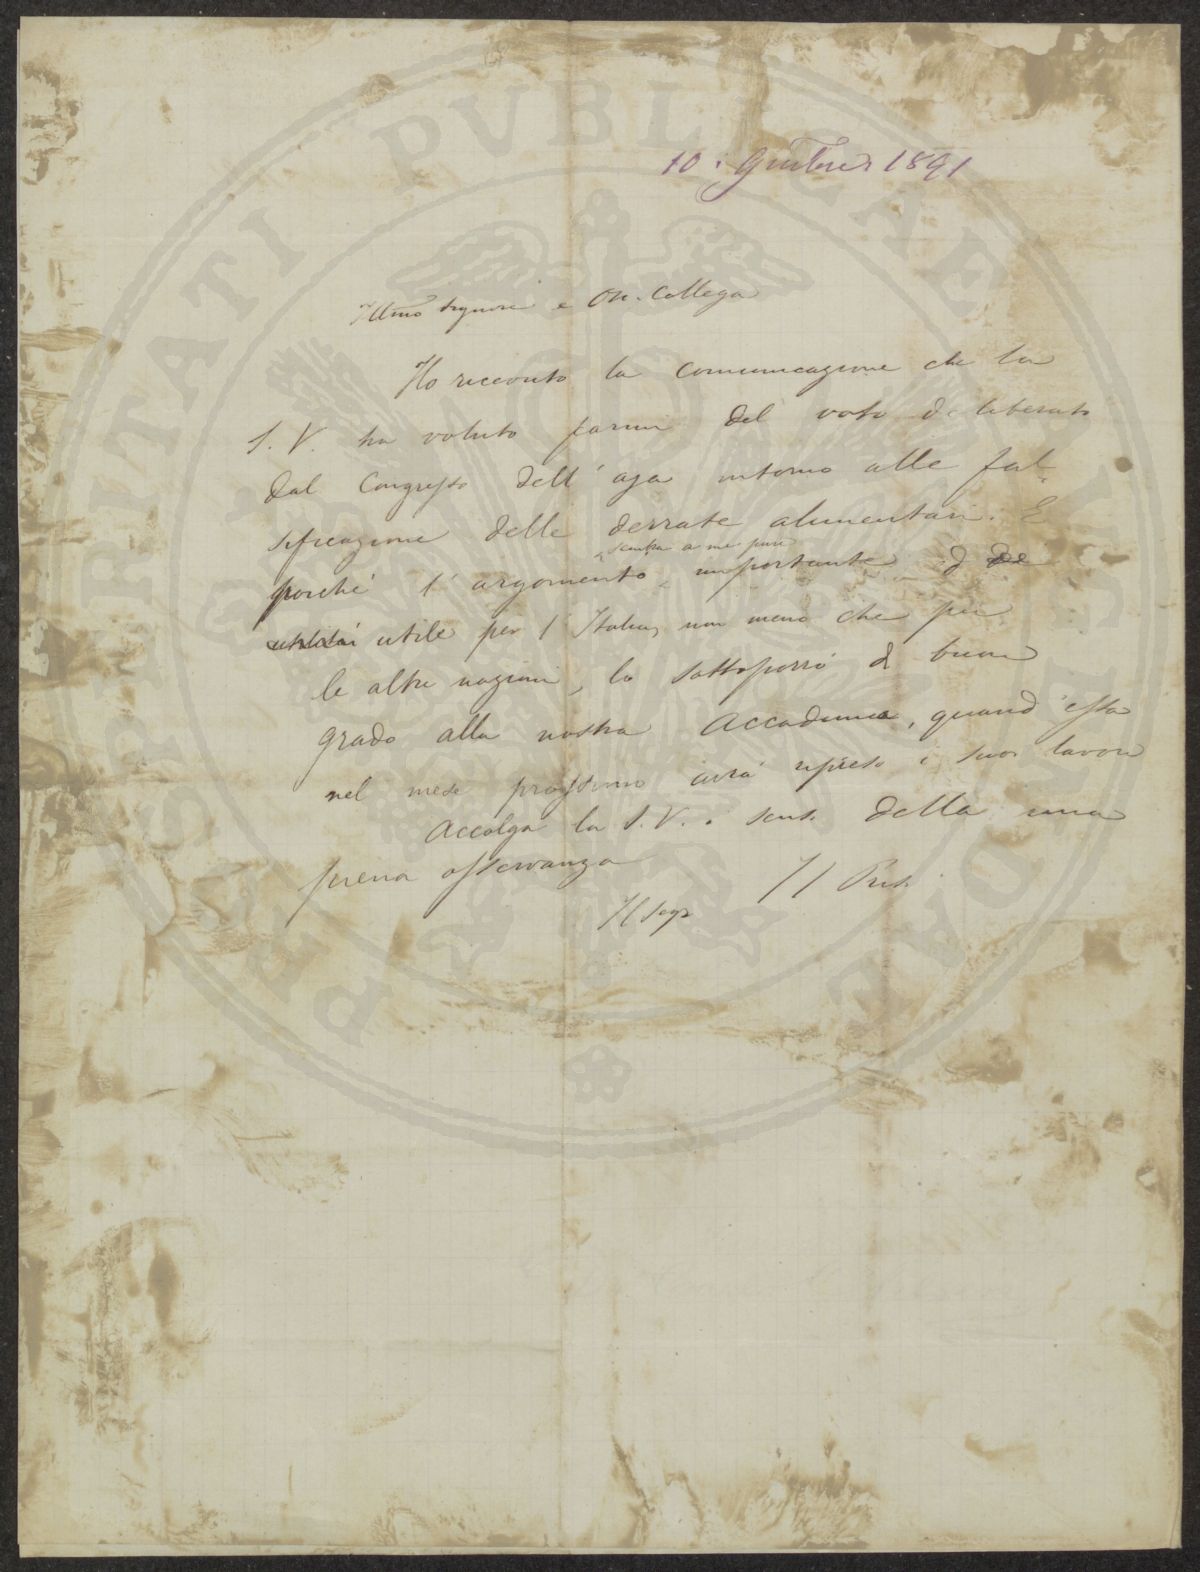 10. Ottobre 1891
Illmo Signore e On. Collega
Ho ricevuto la comunicazione che la
S. V. ha voluto farmi del voto deliberato
dal Congresso dell'Aja intorno alle fal-
sificazione delle derrate alimentari. E
sembra a me pure
poiché l'argomento importante ed
utile per l'Italia, non meno che per
le altre nazioni, lo sottoporrò di buon
grado alla nostra Accademia, quand'essa
nel mese prossimo avrà ripreso i suoi lavori
Accolga la S. V. i sens. della mia
piena osservanza
Il Pres.
Il Segr
PROSPERITATI PUBLICAE AUGENDAE